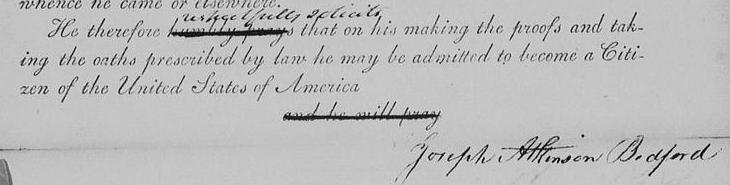 whence he came or elsewhere.
respectfully solicits
He therefore humbly prays that on his making the proofs and tak-
ing the oaths prescribed by law he may be admitted to become a Citi-
zen of the United States of America
and he will pray
Joseph Atkinson Bedford